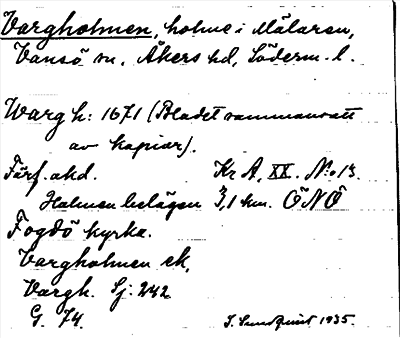 Vargholmen, holme i Mälaren,
Vansö sn, Åkers hd, Söderm. l.
Wargh: 1671 (Bladet sammansatt
av kopior).
Förf. okd. Kr A, XX. N:o 13
Holmen belägen 3,1 km. ÖNÖ
Fogdö kyrka.
Vargholmen ek,
Vargh. Sj: 242
G. 74. I. Sundquist 1935.